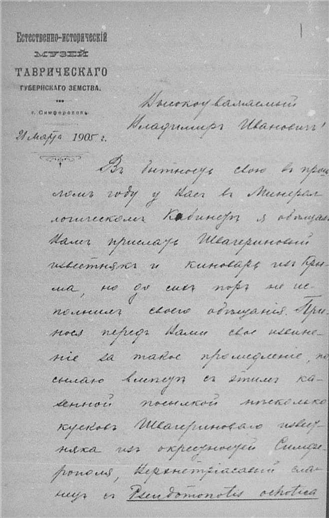 Естественно-историческій
МУЗЕЙ
ТАВРИЧЕСКАГО
ГУБЕРНСКАГО ЗЕМСТВА.
г. Симферополь.
21 Марта 1905 г.
Высокоуважаемый
Владимиръ Ивановичъ!
Въ бытность свою въ прош
ломъ году у Васъ въ Минерал
логическомъ Кабинетѣ я обѣщалъ
Вамъ прислать Швагериновый
известнякъ и киноварь изъ Кры
ма, но до сихъ поръ не ис
полнилъ своего обѣщанія. При
нося передъ Вами свое извине
ніе за такое промедленіе, по
сылаю вмѣстѣ съ этимъ ка
зенной посылкой нѣсколько
кусковъ Швагериноваго извест
няка изъ окрестностей Симфе
рополя, Верхнетріасовый сла
нецъ съ Pseudomonotis ochotica